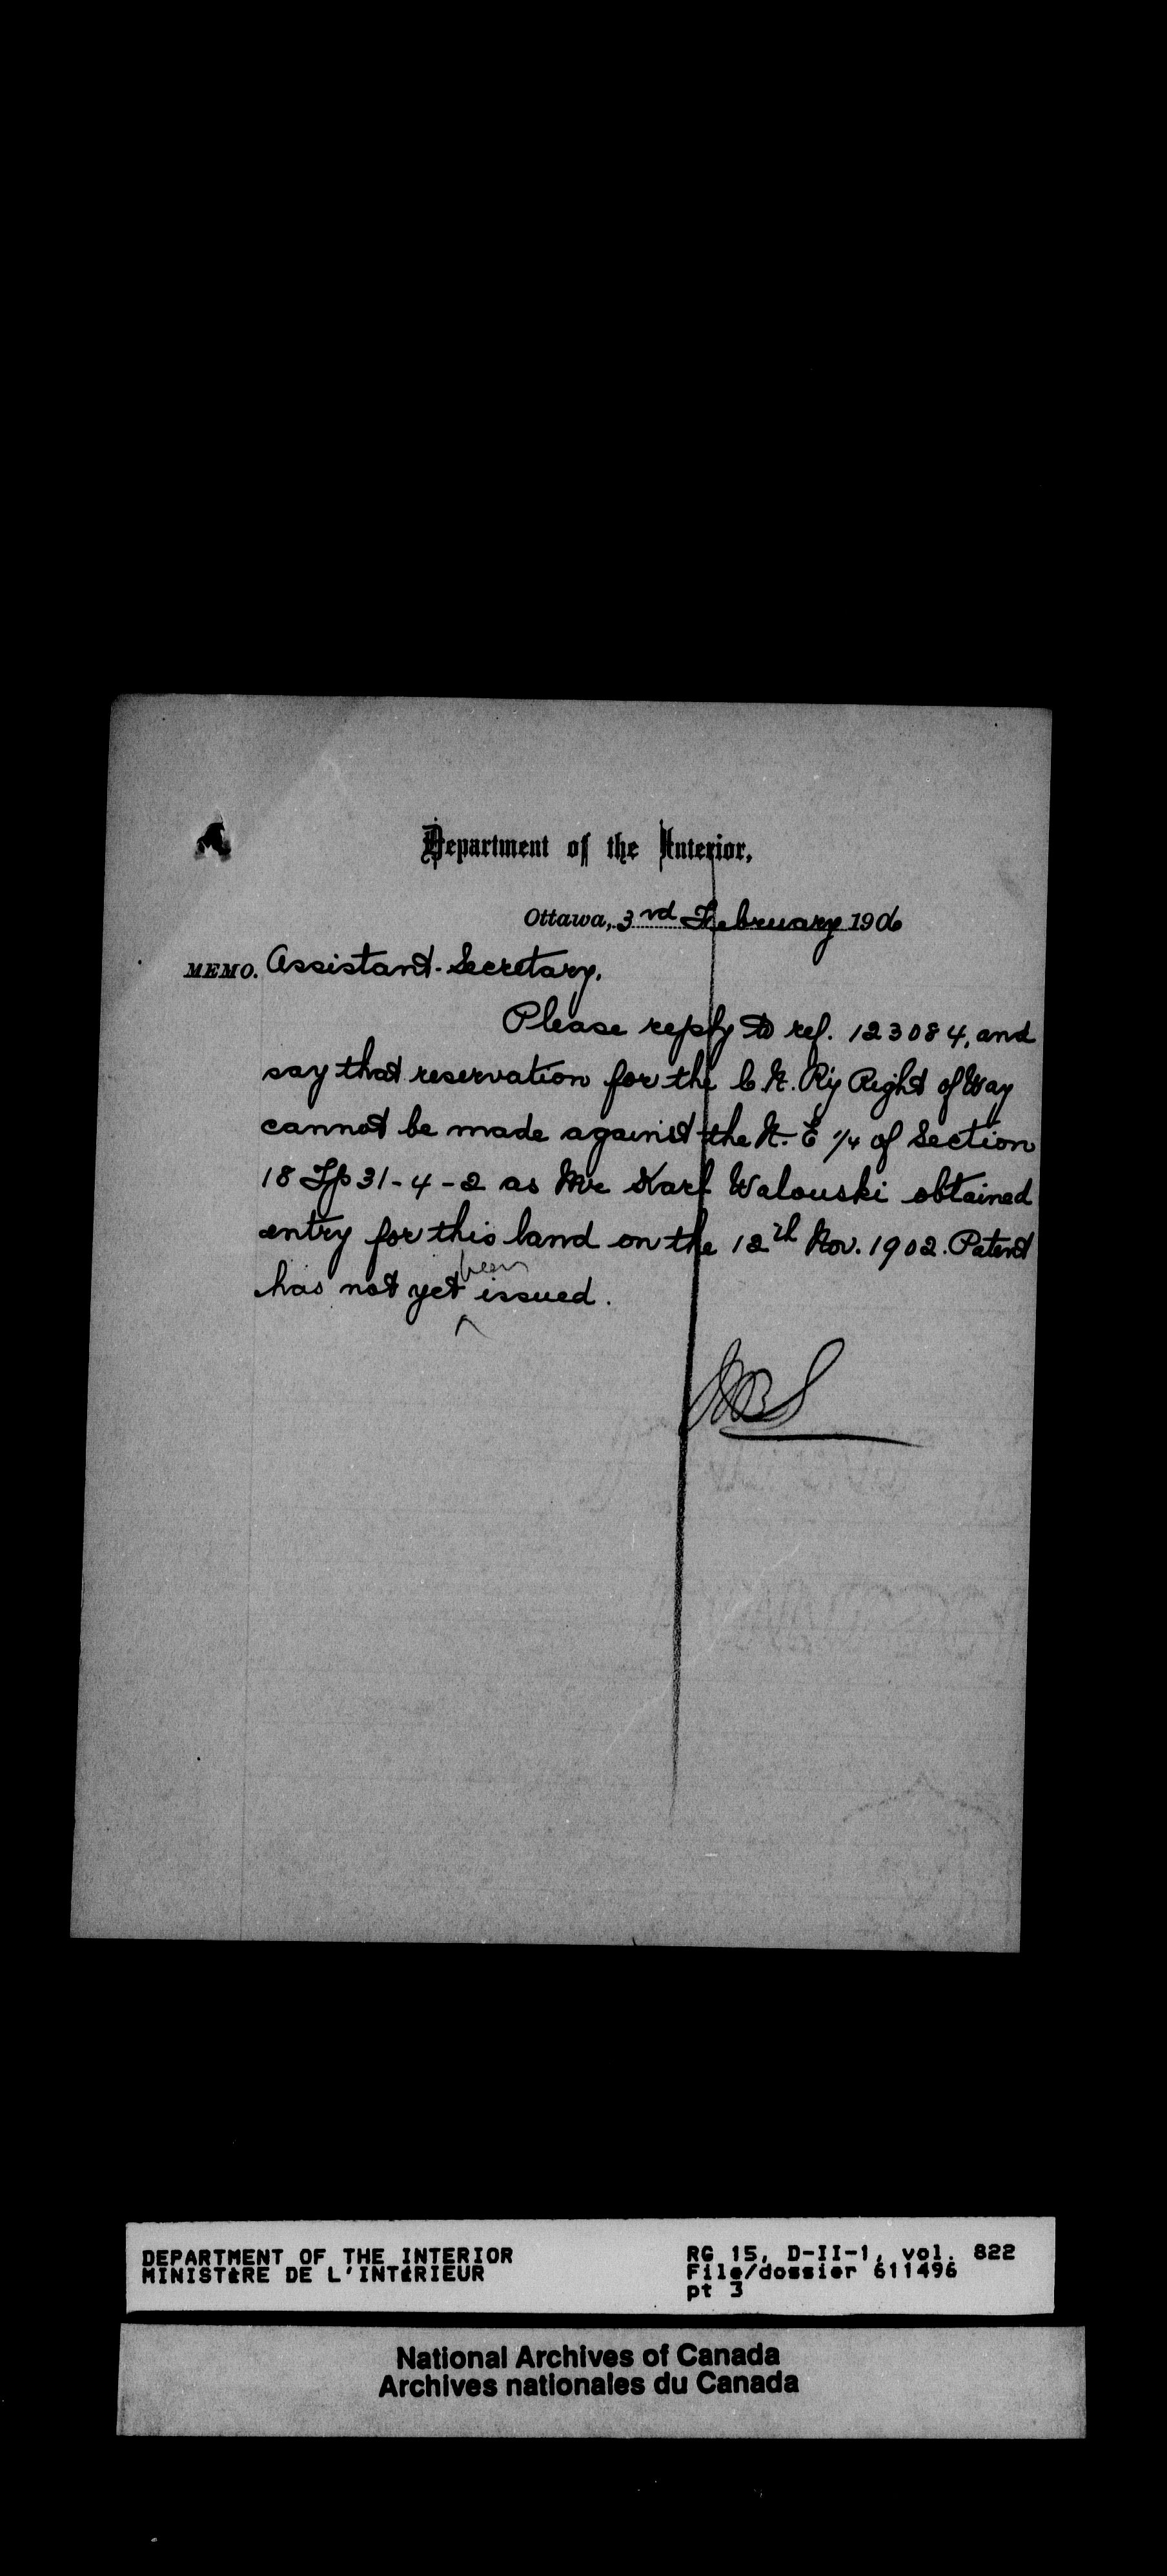 Department of the Interior,
Ottawa, 3rd February 1906
MEMO. Assistant-Secretary.
Please reply to ref. 123084, and
say that reservation for the C.N. Ry Right of Way
cannot be made against the N. E 1/4 of Section
18 Tp 31-4-2 as Mr Karl Walouski obtained
entry for this land on the 12th Nov. 1902. Patent
has not yet been issued.
DEPARTMENT OF THE INTERIOR
MINISTÈRE DE L'INTÉRIEUR
RG 15, D-II-1, vol. 822
File/dossier 611496
pt 3
National Archives of Canada
Archives nationales du Canada